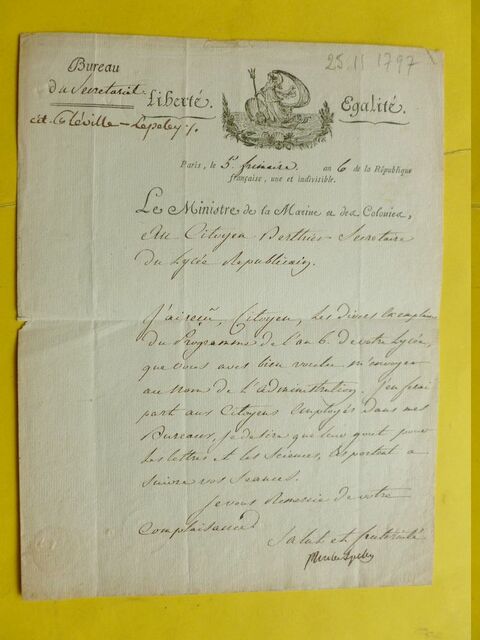 25.11 1797
Bureau
du Secretariat
Liberté. Egalité.
Paris, le 5. frimaire an 6 de la République
française, une et indivisible.
Le Ministre de la Marine et des Colonies,
Au Citoyen Berthier Secretaire
du Lycée Republicain.
J'ai reçu, Citoyen, les divers Exemplaires
du Programme de l'an 6. de votre Lycée,
que vous avez bien voulu m'envoyer
au nom de l'administration. J'en fais
part aux Citoyens employés dans mes
Bureaux, je desire que leur gout pour
les lettres et les Sciences, les portent a
suivre vos seances.
Je vous Remercie de votre
Complaisance
Salut et fraternité